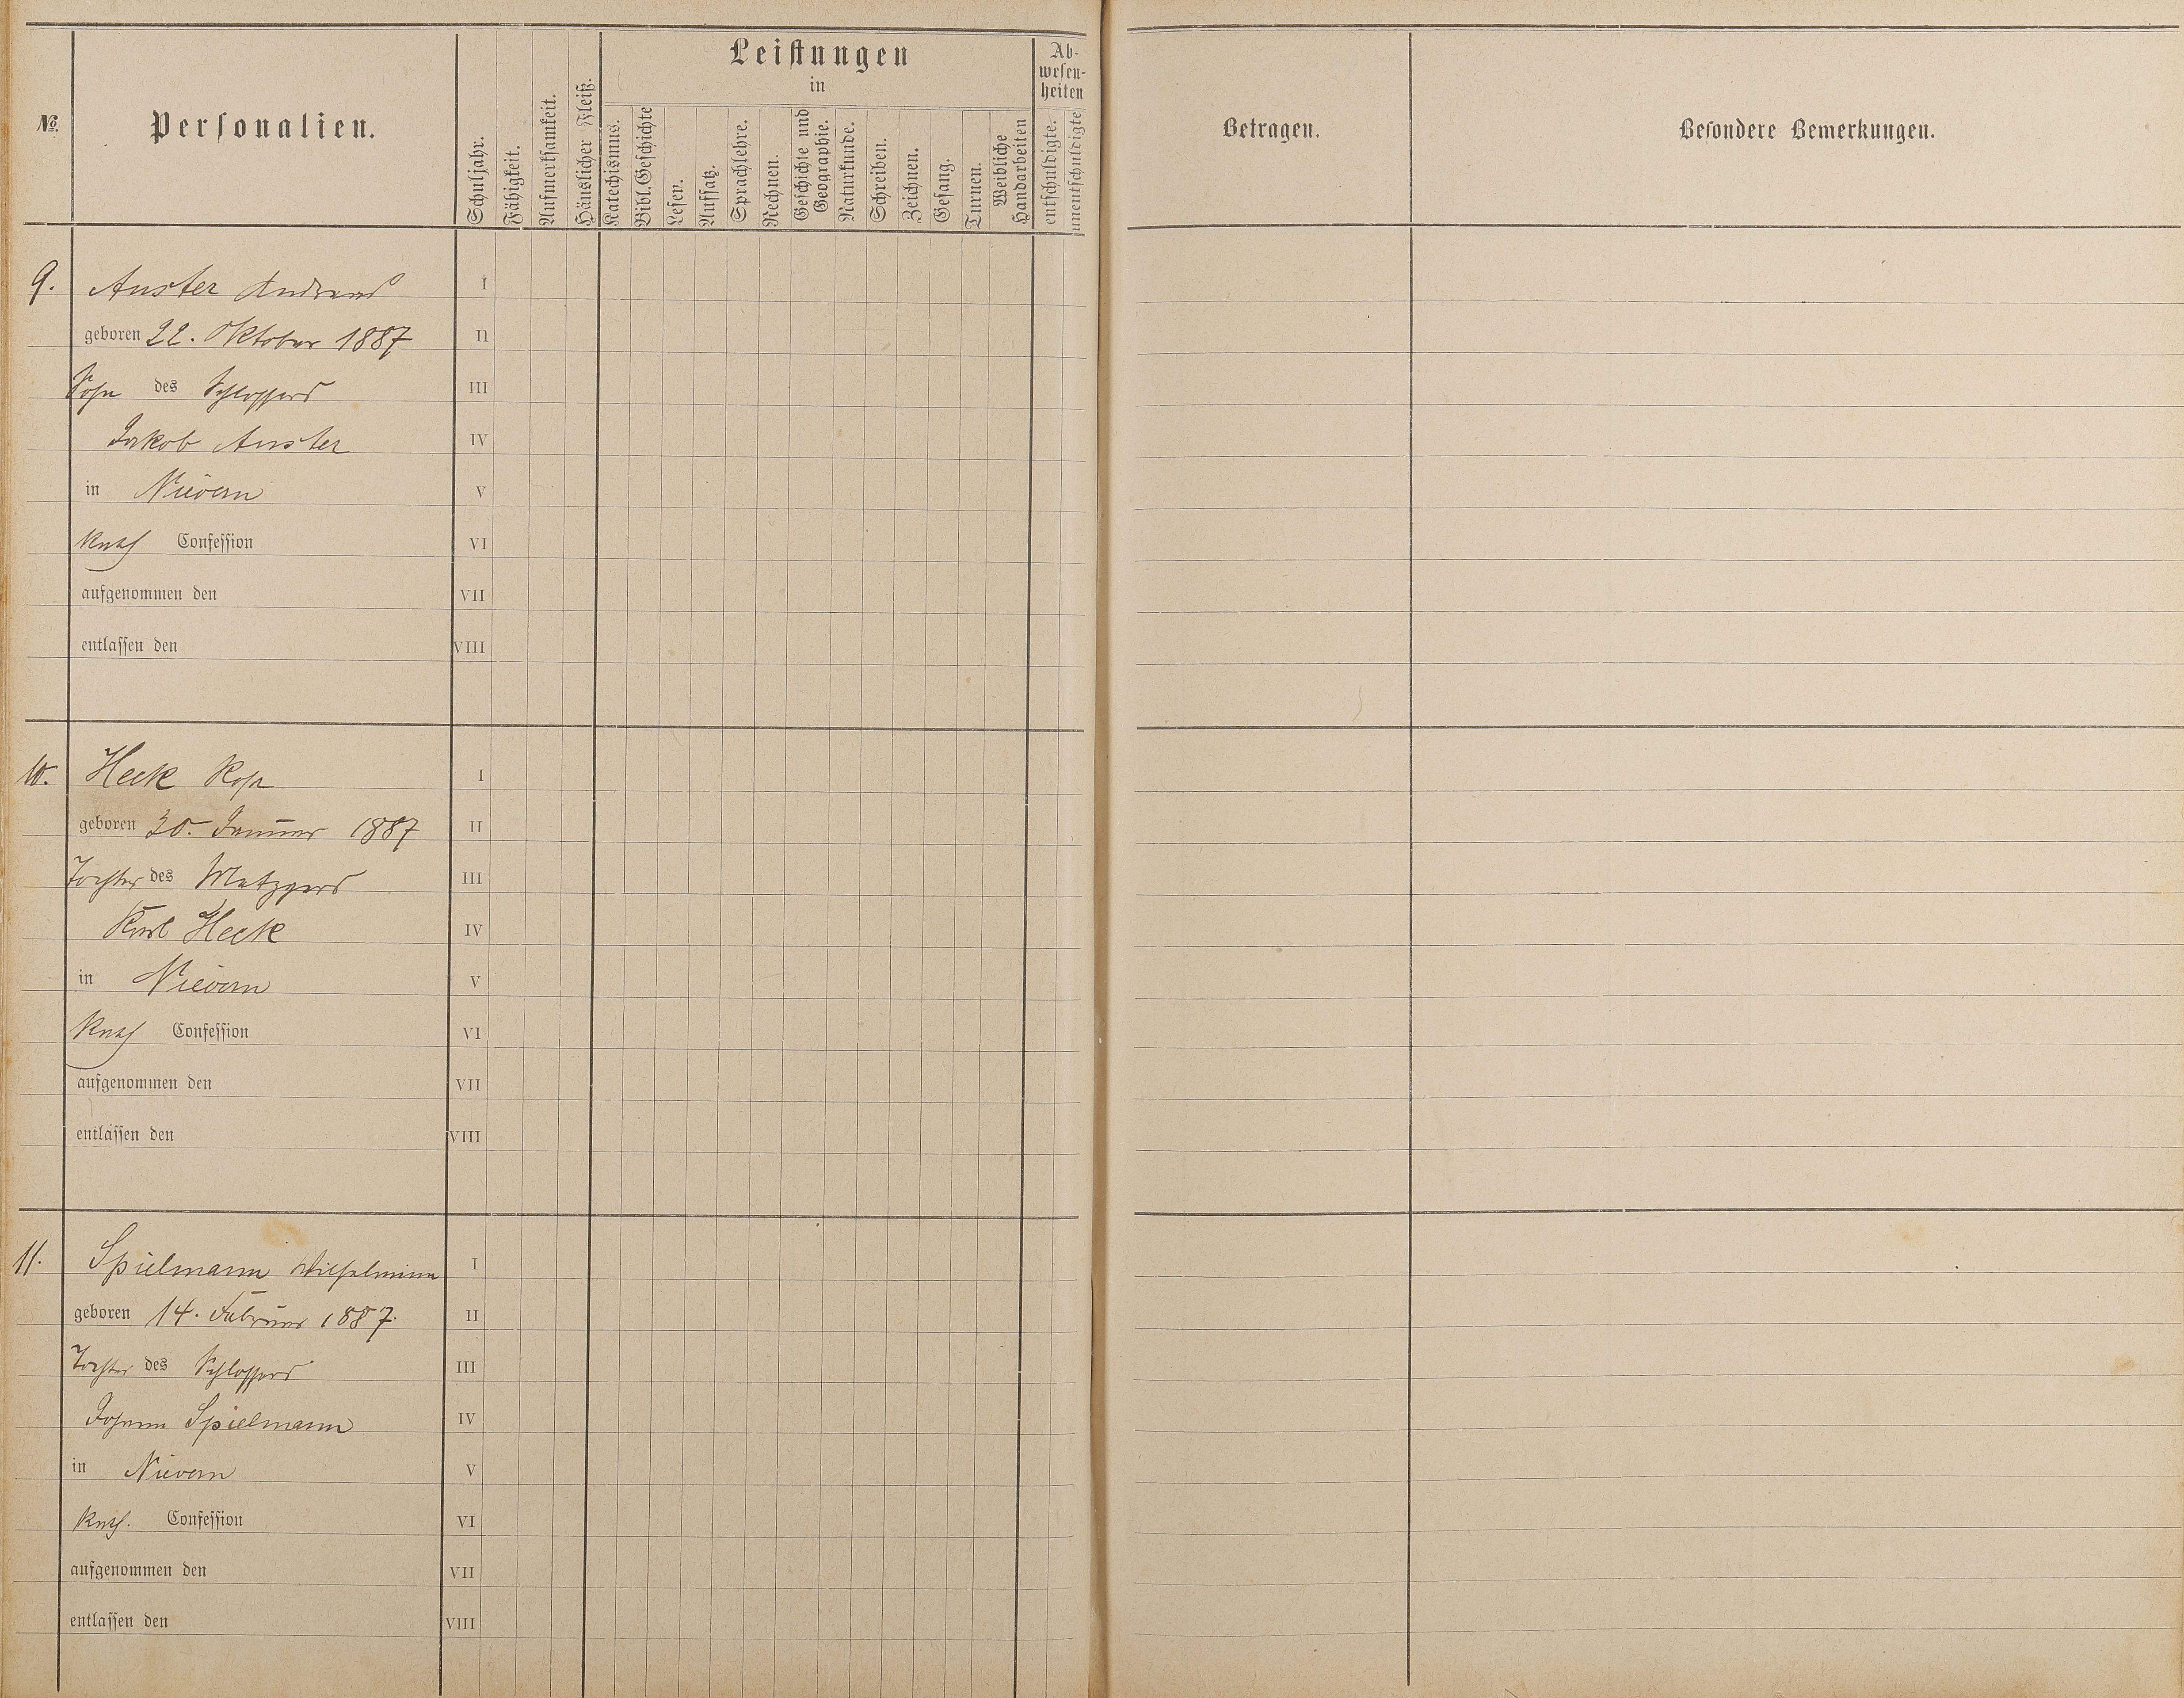 №.
Personalien.
Schuljahr.
Fähigkeit.
Aufmerksamkeit.
Häuslicher Fleiß.
Leistungen
in
Katechismus.
Bibl. Geschichte
Lesen.
Aufsatz.
Sprachlehre.
Rechnen.
Geschichte und
Geographie.
Naturkunde.
Schreiben.
Zeichnen.
Gesang.
Turnen.
Weibliche
Handarbeiten
Ab-
wesen-
heiten
entschuldigte.
unentschuldigte
Betragen.
Besondere Bemerkungen.
9. Auster Andreas I
geboren 22. Oktober 1887 II
Sohn des Schlossers III
Jakob Auster IV
in Nievern V
Kath Confession VI
aufgenommen den VII
entlassen den VIII
10. Heck Rosa I
geboren 30. Januar 1887 II
Tochter des Metzgers III
Karl Heck IV
in Nievern V
Kath Confession VI
aufgenommen den VII
entlassen den VIII
11. Spielmann Wilhelmina I
geboren 14. Februar 1887. II
Tochter des Schlossers III
Johann Spielmann IV
in Nievern V
Kath. Confession VI
aufgenommen den VII
entlassen den VIII